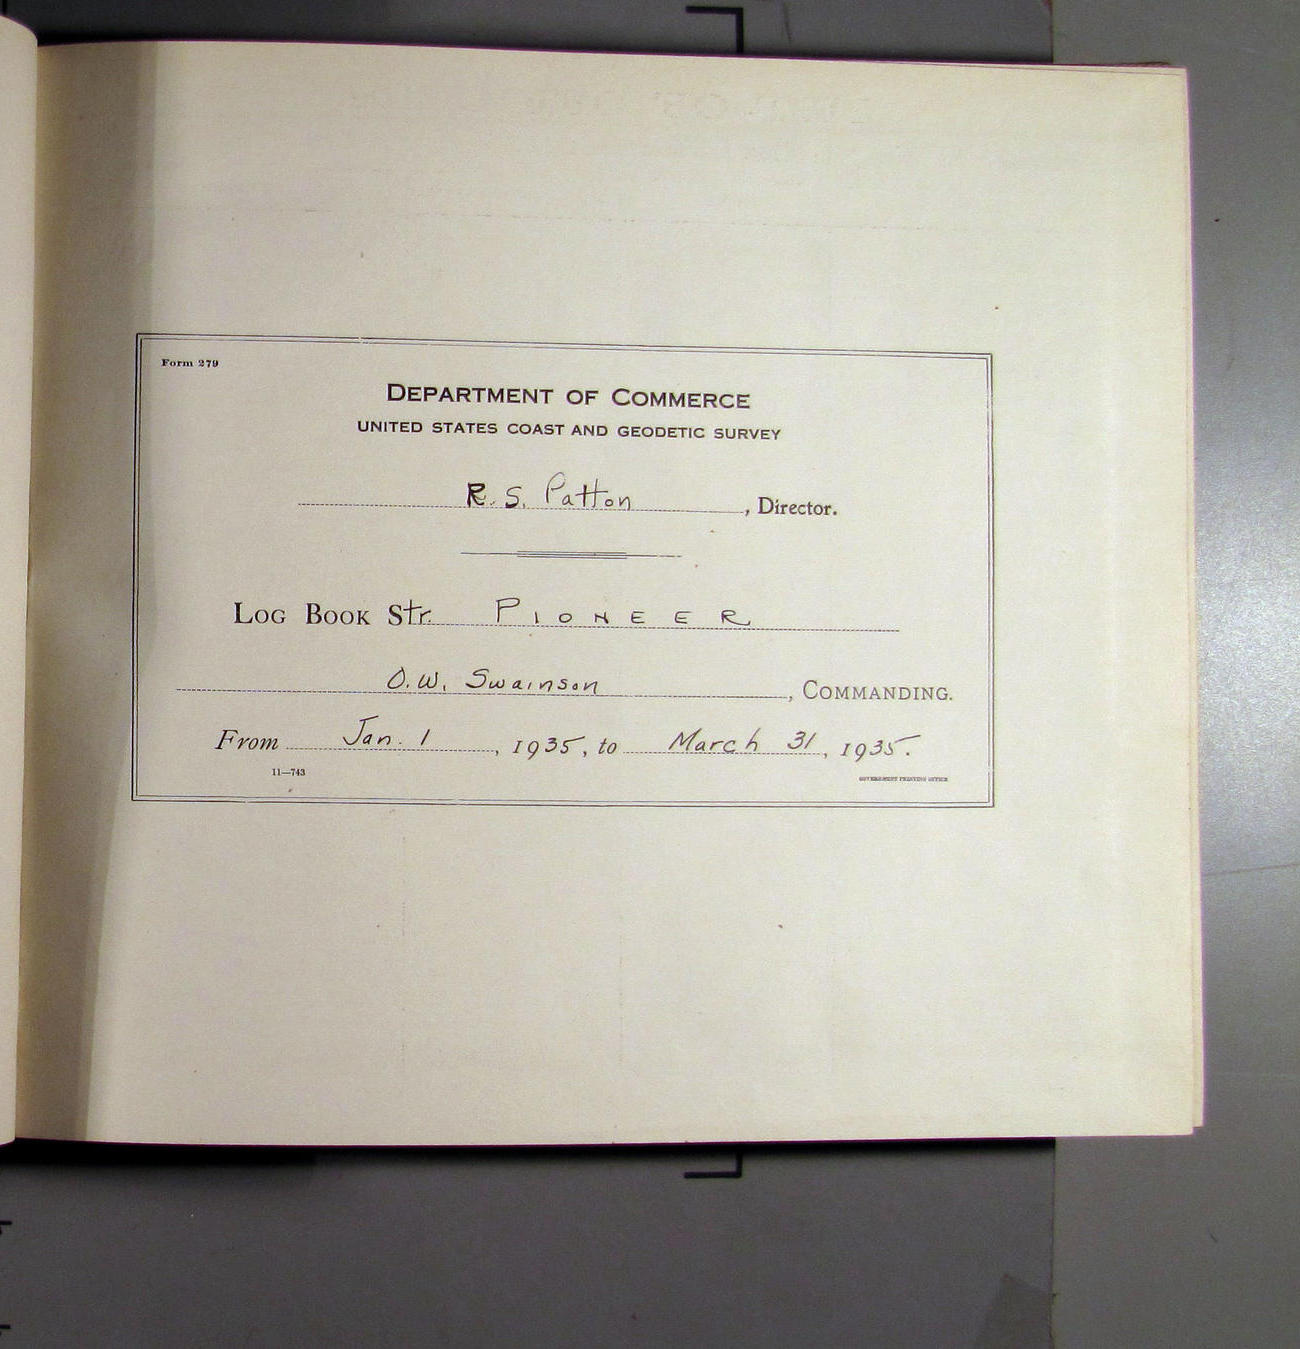 Form 279
DEPARTMENT OF COMMERCE
UNITED STATES COAST AND GEODETIC SURVEY
R. S. Patton, Director.
LOG BOOK Str. PIONEER
O. W. Swainson, COMMANDING.
From Jan. 1, 1935, to March 31, 1935.
11—743 GOVERNMENT PRINTING OFFICE